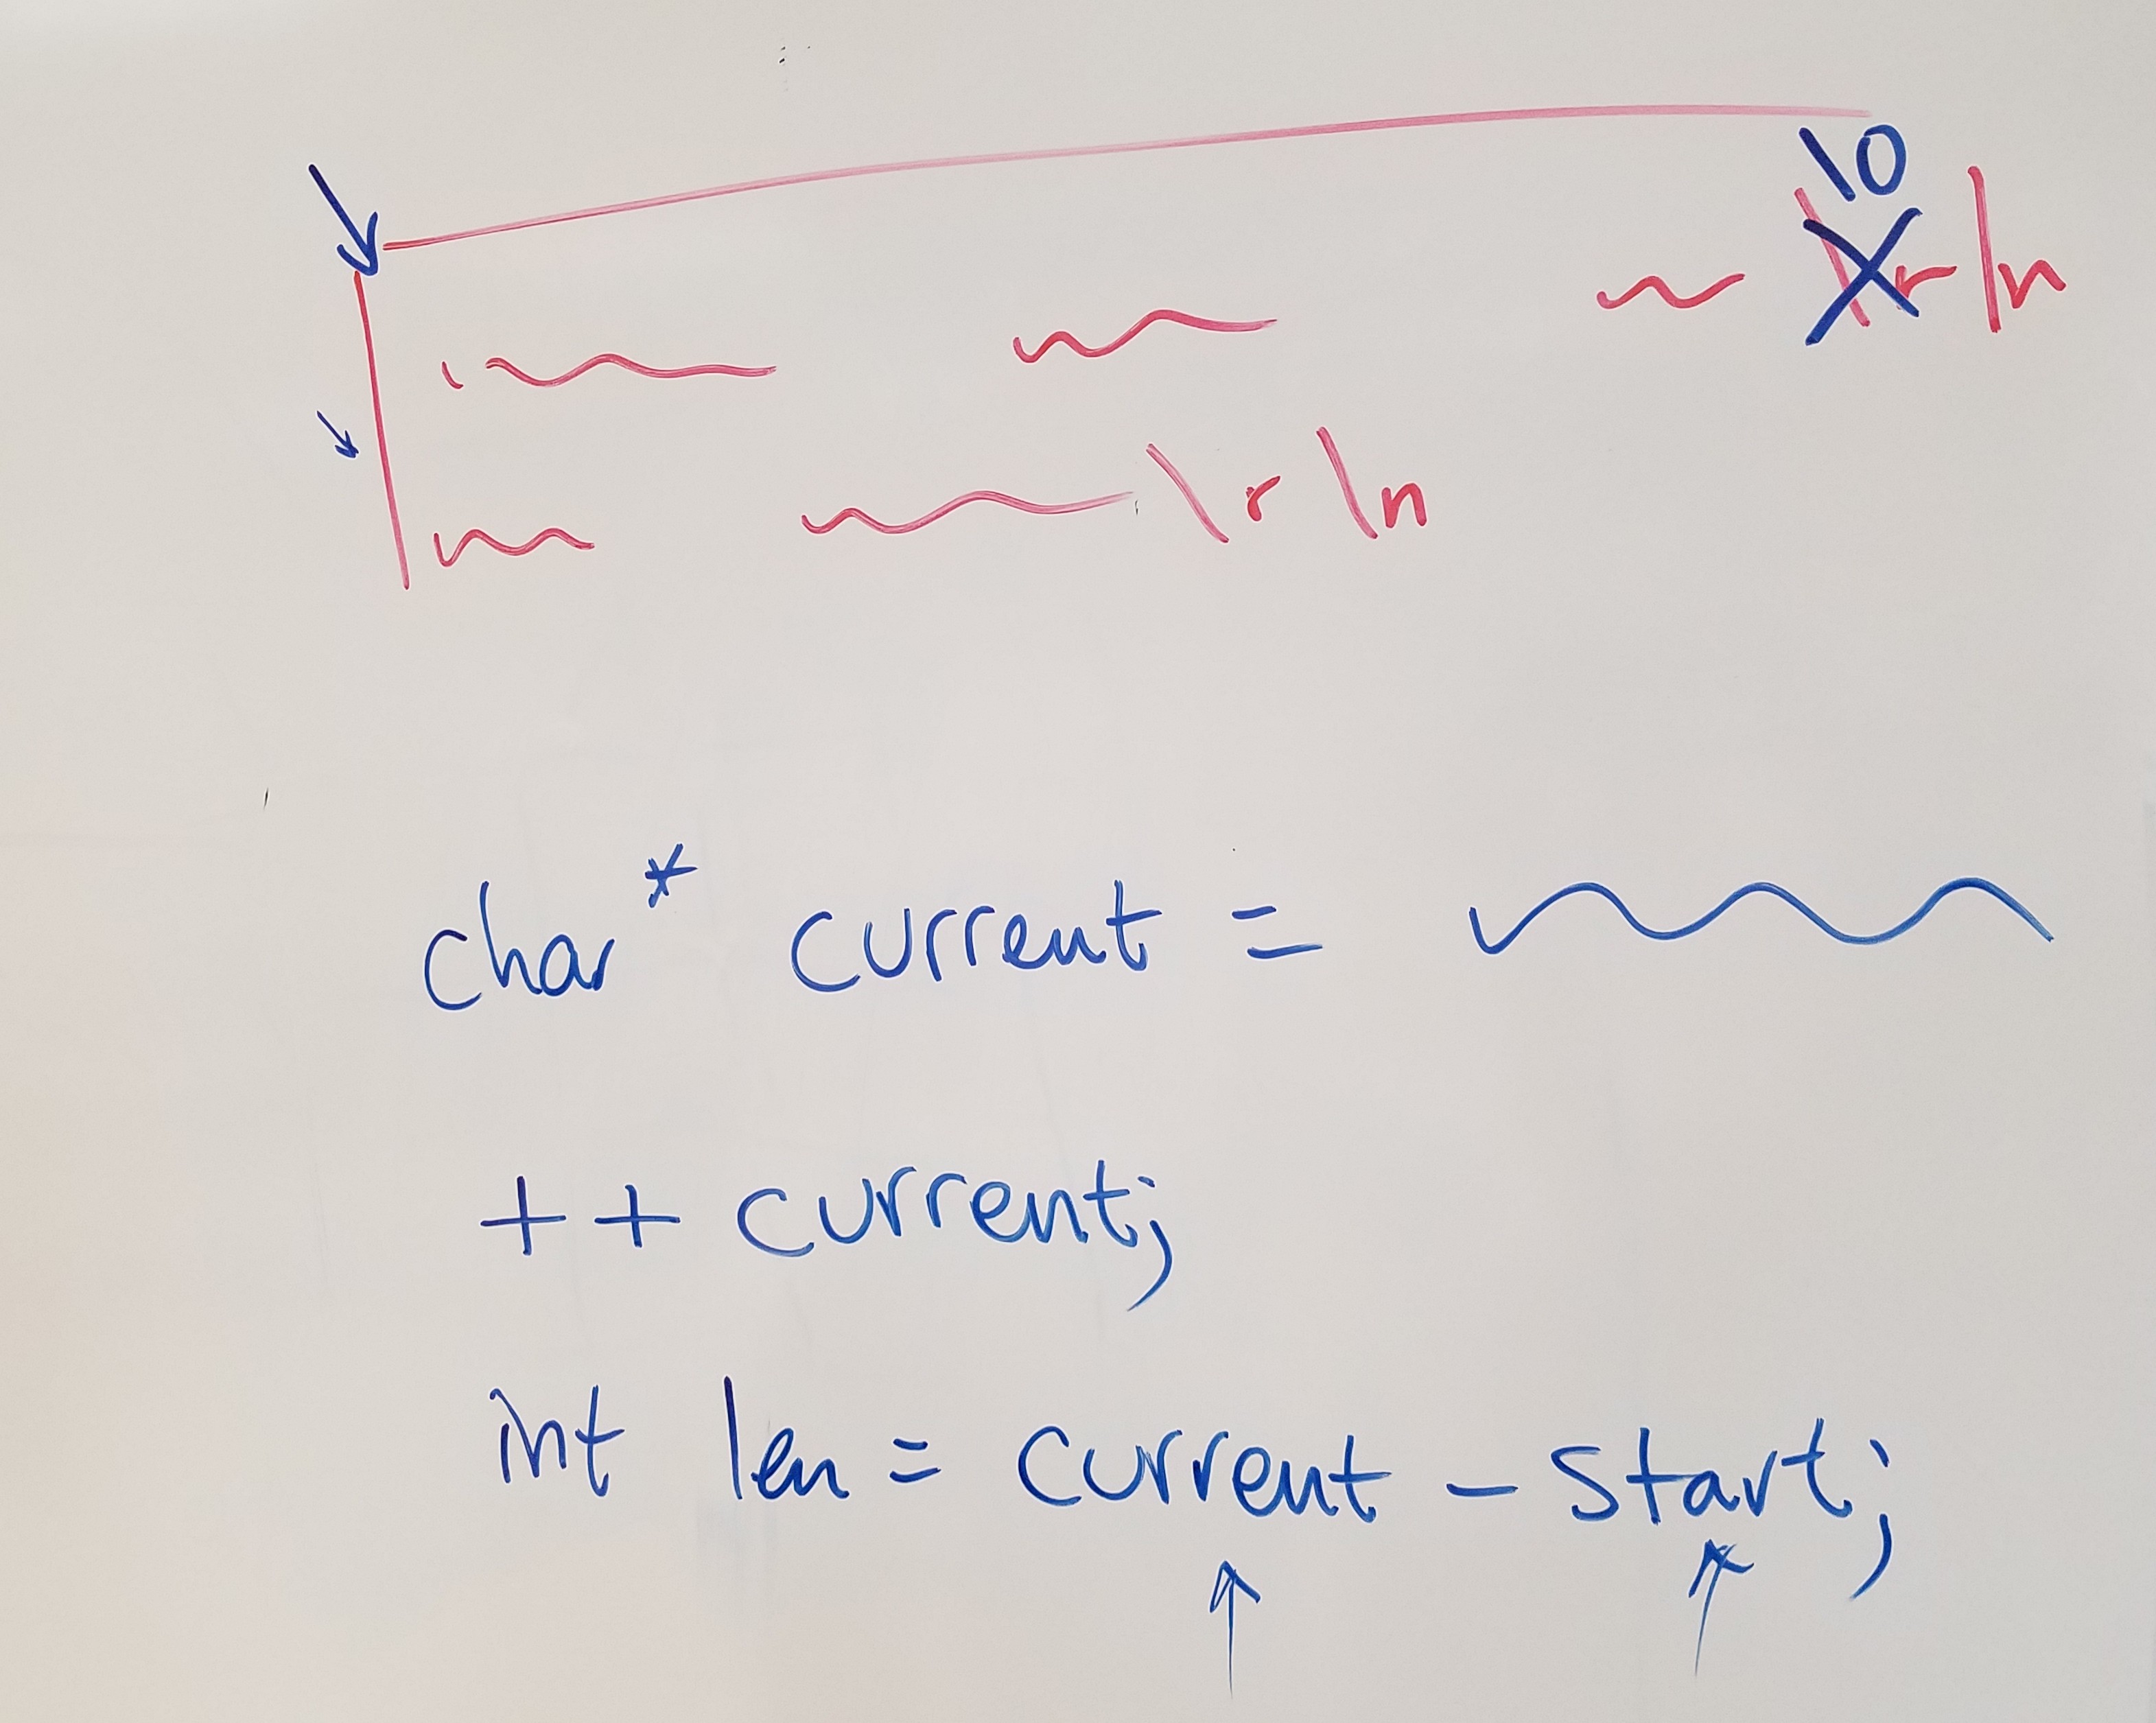 \0
\r\n
\r\n
char* current =
++current;
int len = current - start;